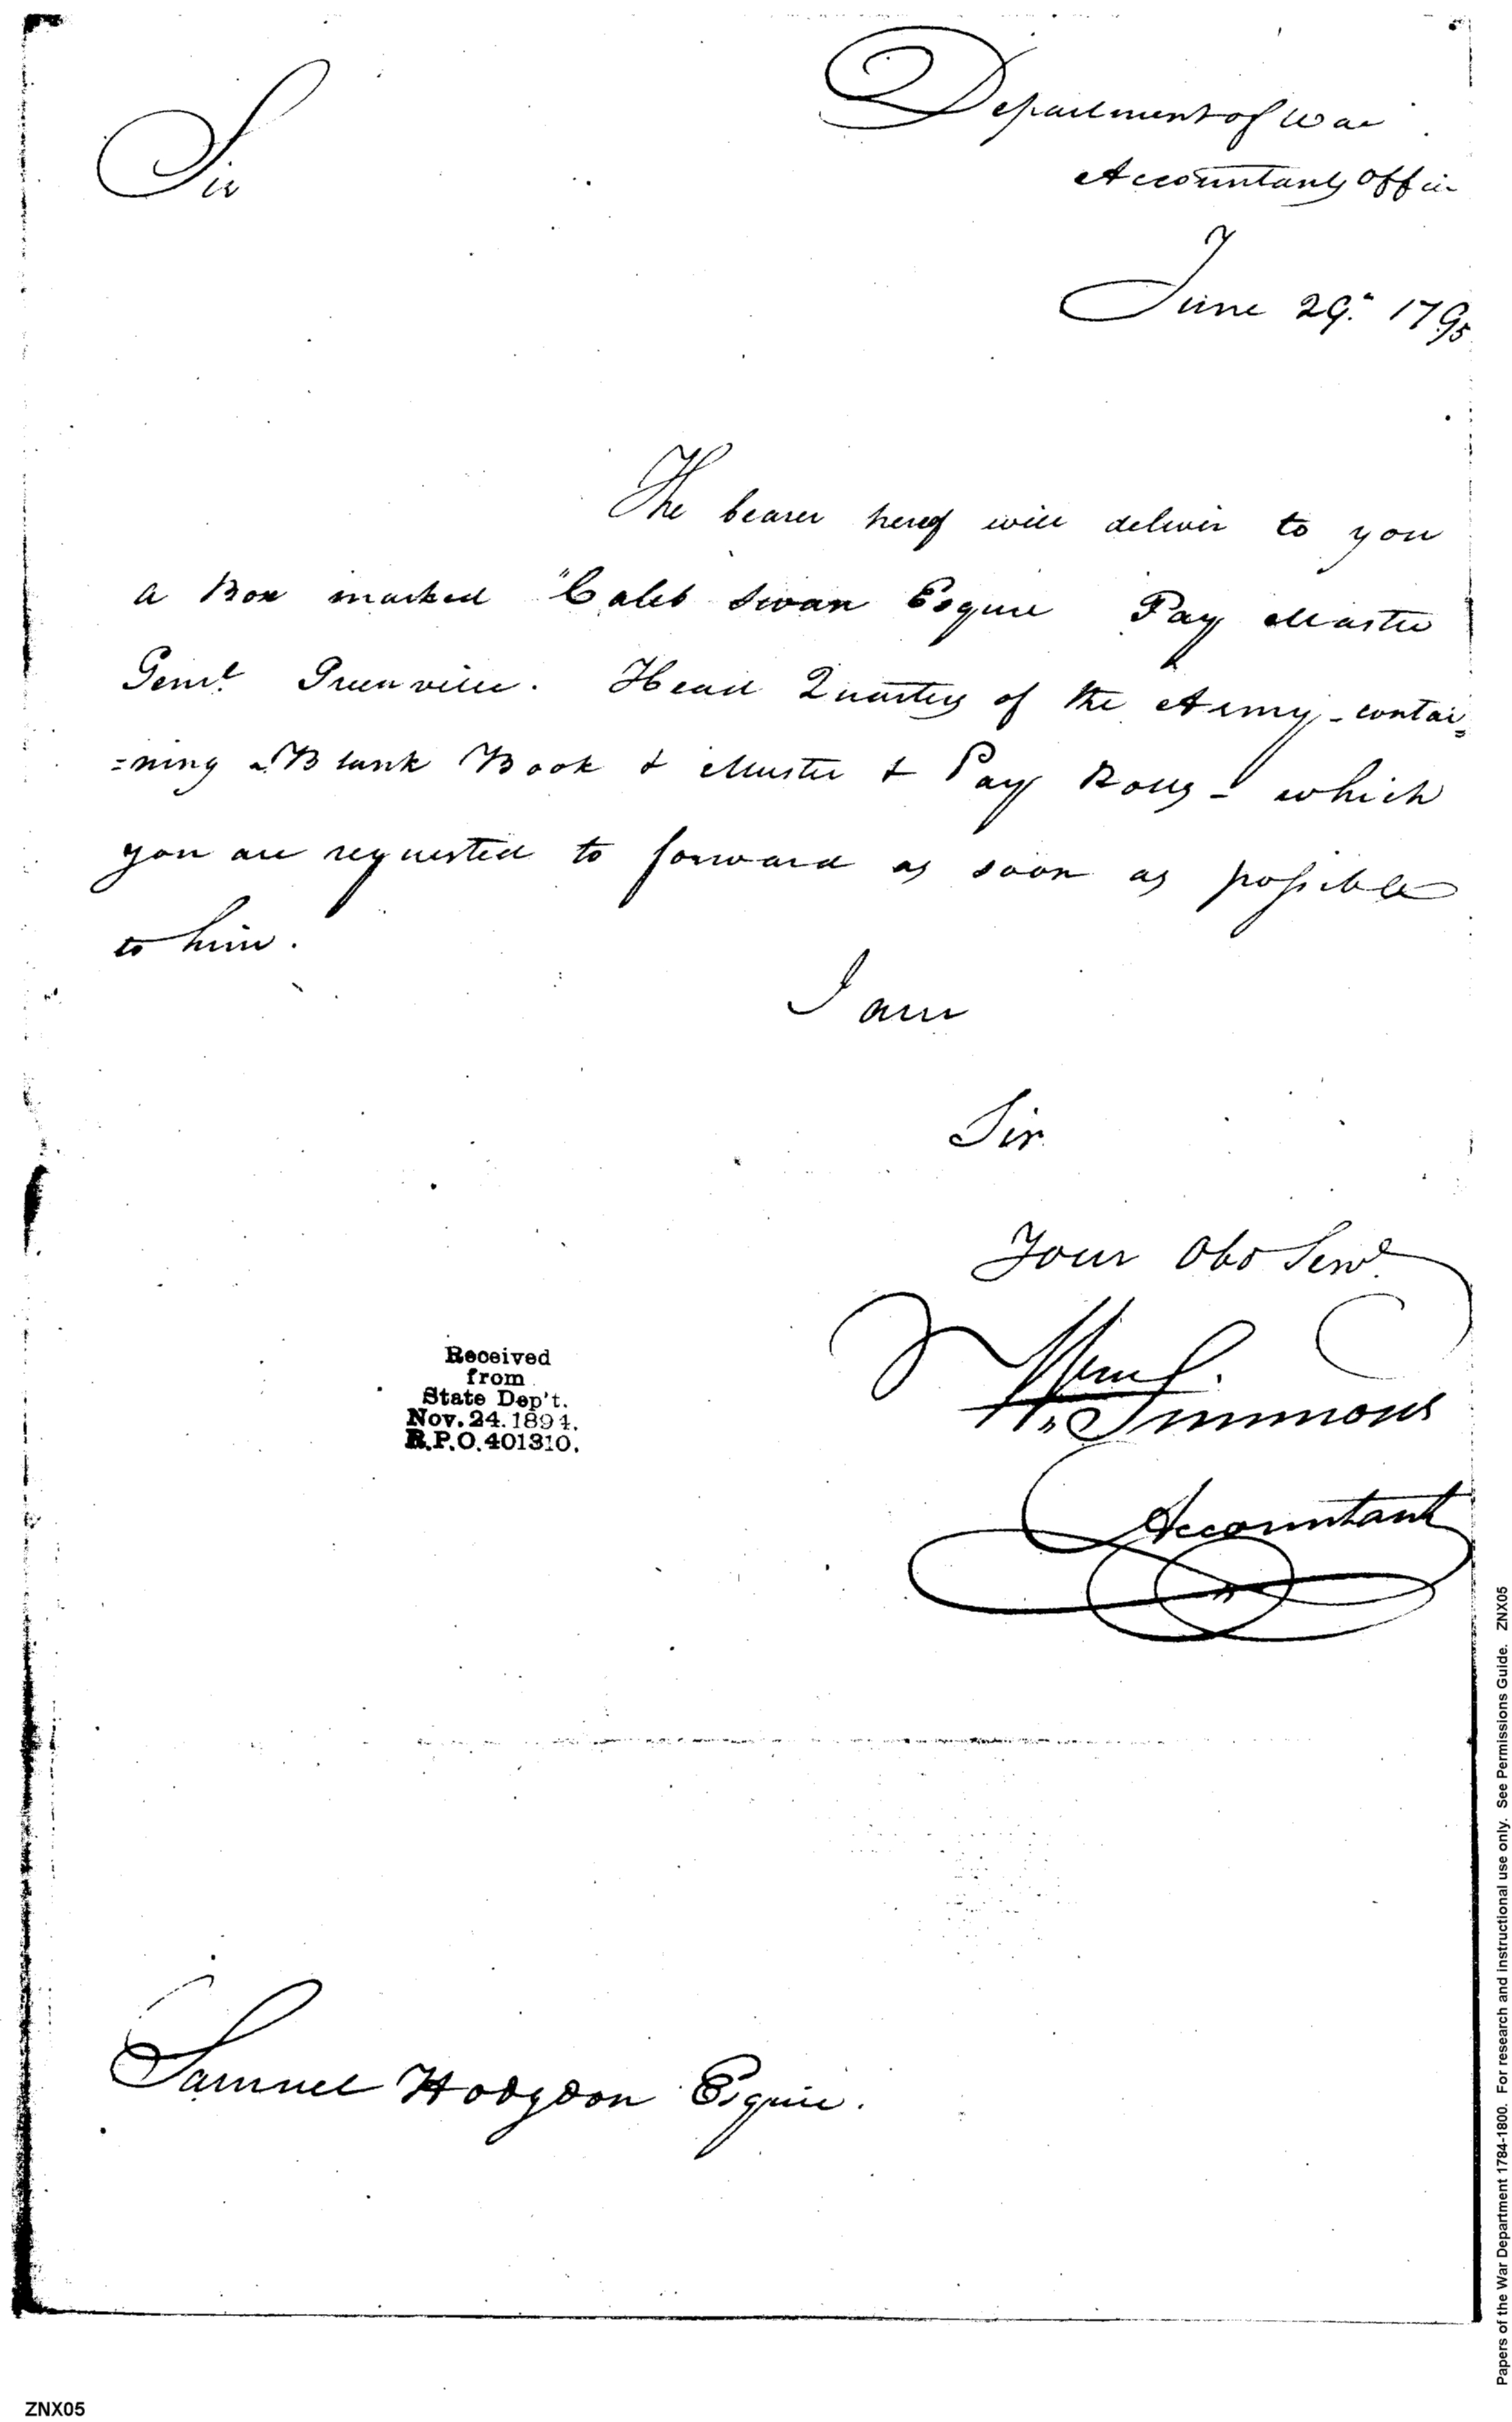 Department of War
Accountants Office
Sir
June 29th 1795
The bearer hereof will deliver to you
a Box marked "Caleb Swan Esquire Pay Master
Genl. Greenville. Head Quarters of the Army - contai=
=ning a Blank Book & Muster & Pay Rolls - which
you are requested to forward as soon as possible
to him.
I am
Sir
Your Obd Servt.
Wm.
Simmons
Accountant
Received
from
State Dep't.
Nov. 24. 1894.
R.P.O. 401310.
Samuel Hodgdon Esquire.
ZNX05
Papers of the War Department 1784-1800. For research and instructional use only. See Permissions Guide. ZNX05